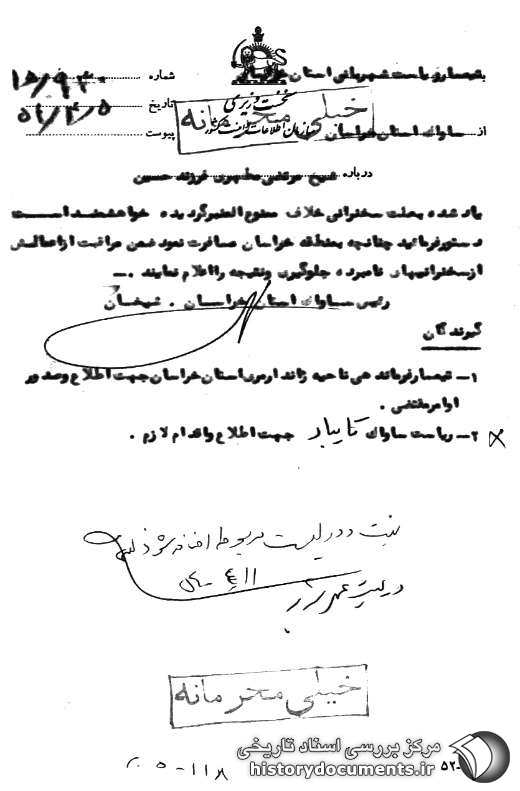 بتیمسار ریاست شهربانی استان خراسان
شماره
نخست وزیری
تاریخ ۵۱/۴/۵
خیلی محرمانه
سازمان اطلاعات و امنیت کشور
از ساواک استان خراسان
پیوست
درباره شیخ مرتضی مطهری فرزند حسین
یاد شده بعلت سخنرانی خلاف ممنوع المنبر گردیده خواهشمند است
دستور فرمائید چنانچه بمنطقه خراسان مسافرت نمود ضمن مراقبت از اعمالش
از سخنرانیهای نامبرده جلوگیری و نتیجه را اعلام نمایند .ـــ
رئیس ساواک استان خراسان . شیخان
گیرندگان
۱ــ تیمسار فرماندهی ناحیه ژاندارمری استان خراسان جهت اطلاع و صدور
اوامر مقتضی .
۲ــ ریاست ساواک تایباد جهت اطلاع و اقدام لازم .
در لیست مربوطه اضافه شود
۴/۱۱
در لیست عمل شد
خیلی محرمانه
مرکز بررسی اسناد تاریخی
historydocuments.ir